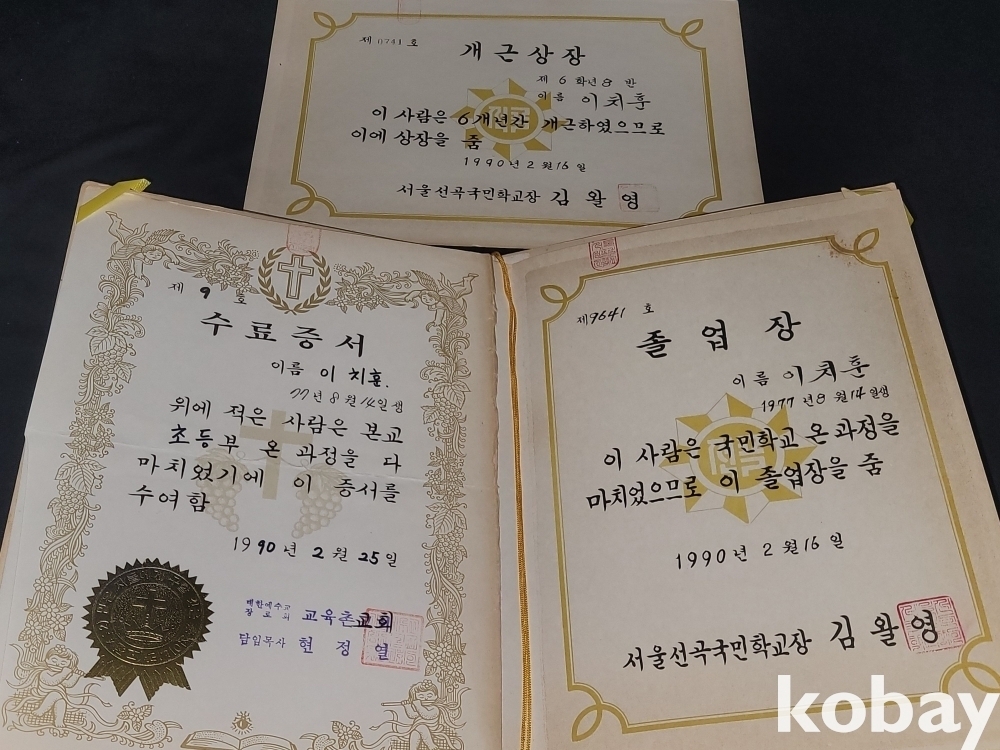 제 0741 호
개근상장
제 6 학년 8 반
이름 이치훈
이 사람은 6개년간 개근하였으므로
이에 상장을 줌
1990년 2월 16일
서울선곡국민학교장 김왈영
제 9 호
수료증서
이름 이치훈.
77년 8월 14일생
위에 적은 사람은 본교
초등부 온 과정을 다
마치었기에 이 증서를
수여함
1990년 2월 25일
대한예수교
장로회 교육촌교회
담임목사 현정열
제 9641 호
졸업장
이름 이치훈
1977년 8월 14일생
이 사람은 국민학교 온 과정을
마치었으므로 이 졸업장을 줌
1990년 2월 16일
서울선곡국민학교장 김왈영
kobay